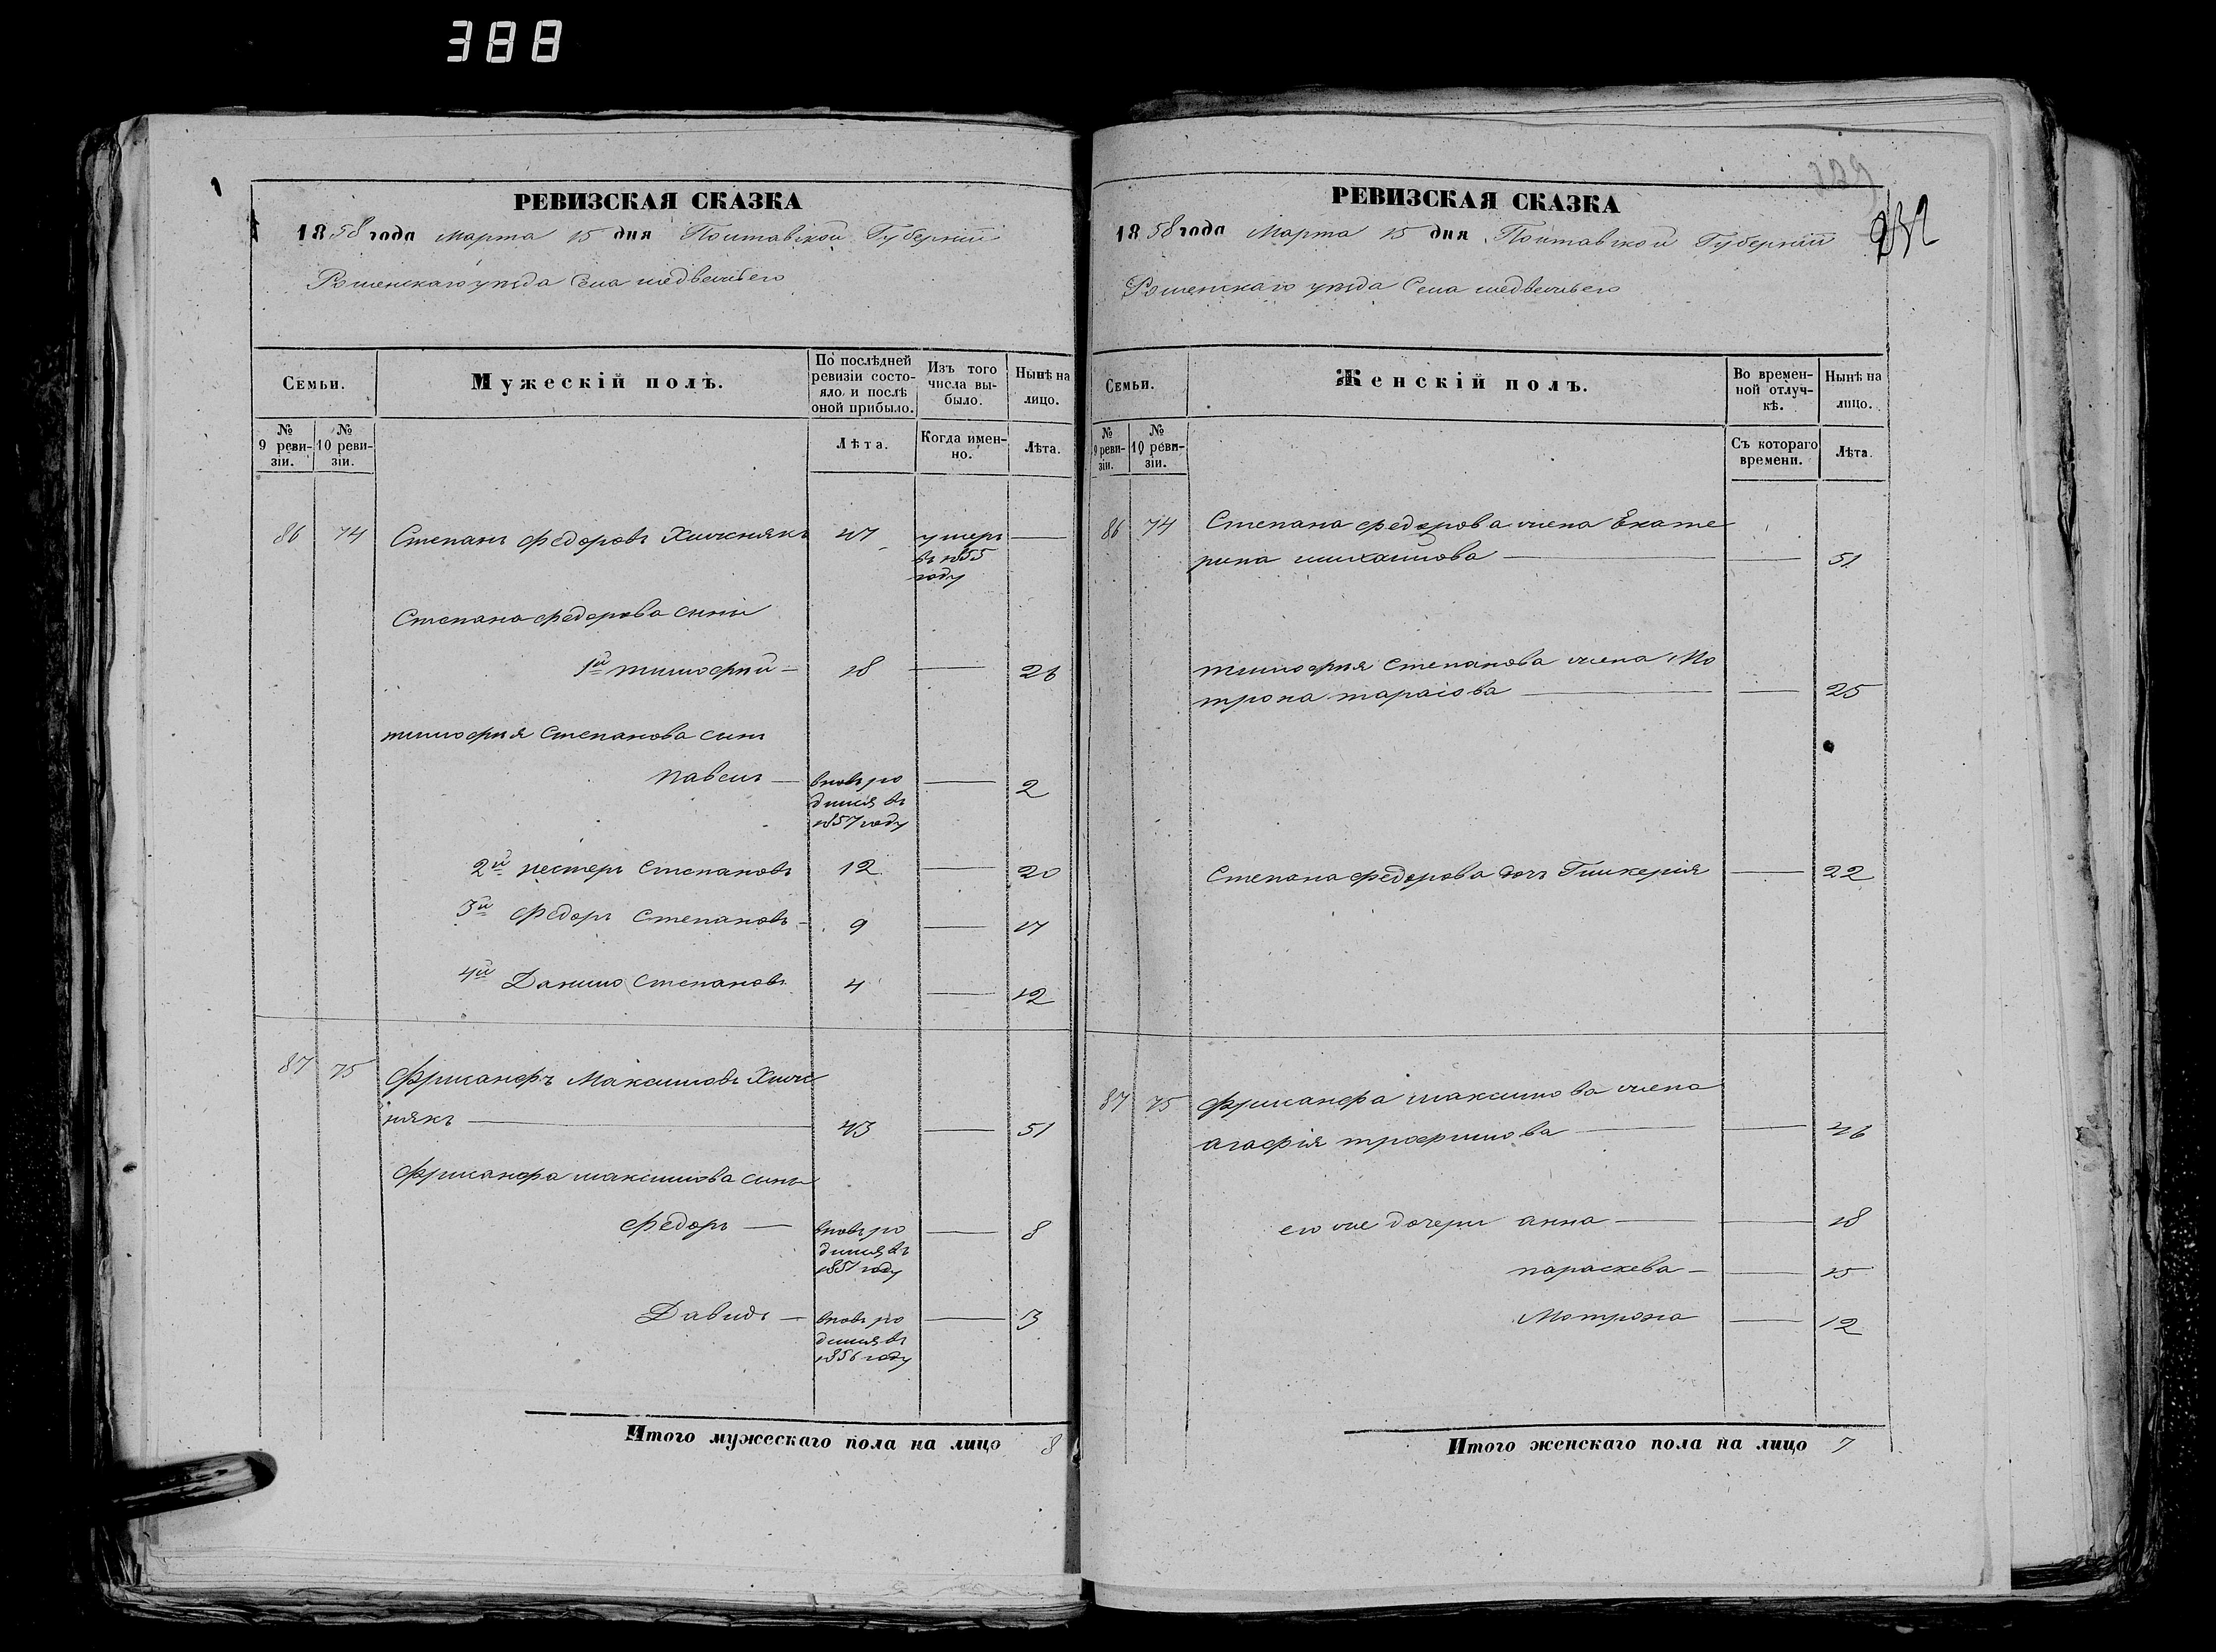 388
РЕВИЗСКАЯ СКАЗКА
1858 года Марта 15 дня Полтавской Губерніи
Роменскаго уѣзда Села Медвежьего
Семьи.
Мужескій полъ.
По послѣдней ревизіи состояло и послѣ оной прибыло.
Изъ того числа выбыло.
Нынѣ на лицо.
№ 9 ревизіи.
№ 10 ревизіи.
Лѣта.
Когда именно.
Лѣта.
86 74 Степанъ Федоровъ Хижнякъ 47 умеръ
въ 1855
году
Степана Федорова сыны
1й Тимофей — 18 — 26
Тимофея Степанова сынъ
Павелъ — вновь ро — 2
дился въ
1857 году
2й Нестеръ Степановъ 12 — 20
3й Федоръ Степановъ — 9 — 17
4й Данило Степановъ 4 — 12
87 75 Максимовъ Хиж
някъ — 43 — 51
Максимова сыны
Федоръ — вновь ро — 8
дился въ
1851 году
Давидъ — вновь ро — 3
дился въ
1856 году
Итого мужескаго пола на лицо 8
389
РЕВИЗСКАЯ СКАЗКА
1858 года Марта 15 дня Полтавской Губерніи
Роменскаго уѣзда Села Медвежьего
Семьи.
Женскій полъ.
Во временной отлучкѣ.
Нынѣ на лицо.
№ 9 ревизіи.
№ 10 ревизіи.
Съ котораго времени.
Лѣта.
86 74 Степана Федорова жена Екате
рина Михайлова — — 51
Тимофея Степанова жена Мо
трона Тарасова — — 25
Степана Федорова дочь Гликерія — 22
87 75 Максимова жена
Агафія Трофимова — — 46
его же дочери Анна — — 18
Параскева — — 15
Мотрона — 12
Итого женскаго пола на лицо 7